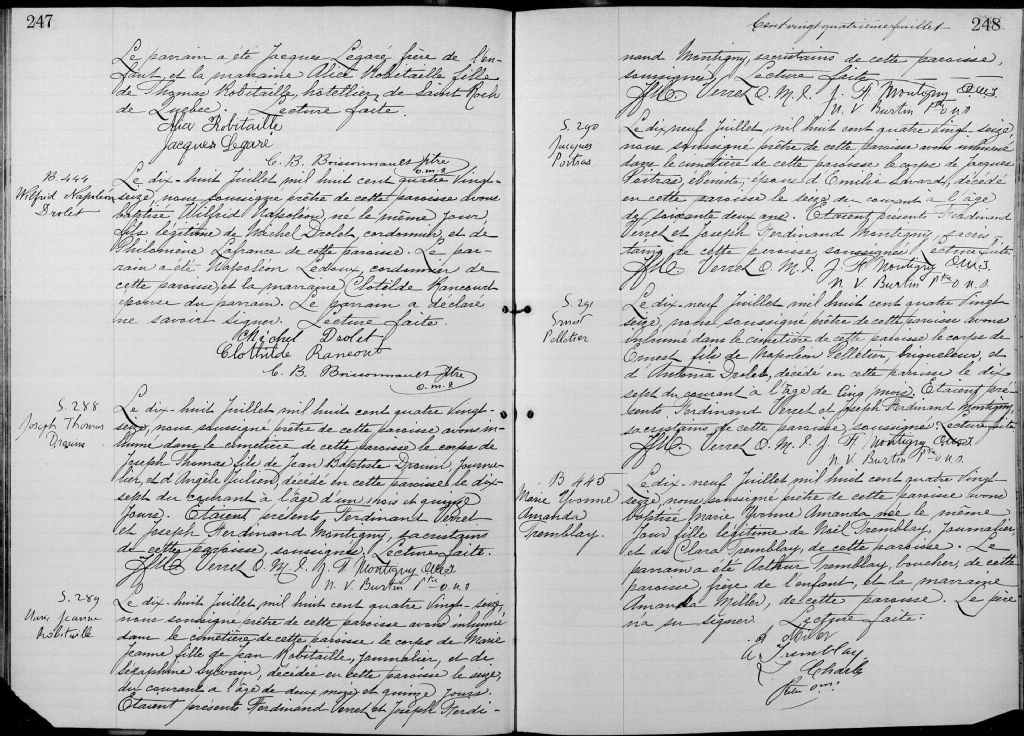 247
Le parrain a été Jacques Légaré, frère de l'en-
fant, et la marraine Alice Robitaille fille
de Thomas Robitaille, hôtellier, de Saint Roch
de Québec. Lecture faite.
Alice Robitaille
Jacques Legaré
C. B. Boissonnault Ptre
o.m.i.
B. 444
Wilfrid Napoléon
Drolet
Le dix-huit Juillet mil huit cent quatre vingt-
seize, nous soussigné prêtre de cette paroisse avons
baptisé Wilfrid Napoléon, né le même jour,
fils légitime de Michel Drolet, cordonnier, et de
Philomène Lafrance de cette paroisse. Le par-
rain a été Napoléon Ledoux, cordonnier de
cette paroisse, et la marraine Clotilde Rancourt
épouse du parrain. Le parrain a déclaré
ne savoir signer. Lecture faite.
Michel Drolet
Clothilde Rancourt
C. B. Boissonnault Ptre
o.m.i.
S. 288
Joseph Thomas
Drouin
Le dix-huit Juillet mil huit cent quatre vingt-
seize, nous soussigné prêtre de cette paroisse avons in-
humé dans le cimetière de cette paroisse le corps de
Joseph Thomas fils de Jean Baptiste Drouin, journa-
lier, et d'Angèle Julien, décédé en cette paroisse le dix-
sept du courant à l'âge d'un mois et quinze
jours. Étaient présents, Ferdinand Verret
et Joseph Ferdinand Montigny, sacristains
de cette paroisse, soussignés. Lecture faite.
Verret O. M. I. J. F. Montigny O.M.I.
N. V. Burtin Ptre o.m.i.
S. 289
Marie Jeanne
Robitaille
Le dix-huit Juillet mil huit cent quatre vingt-seize,
nous soussigné prêtre de cette paroisse avons inhumé
dans le cimetière de cette paroisse le corps de Marie
Jeanne fille de Jean Robitaille, journalier, et de
Séraphine Sylvain, décédée en cette paroisse le seize
du courant à l'âge de deux mois et quinze jours.
Étaient présents Ferdinand Verret, et Joseph Ferdi-
Cent vingt quatrième feuillet
248
nand Montigny, sacristains de cette paroisse,
soussignés, Lecture faite
Verret O. M. I. J. F. Montigny O.M.I.
N. V. Burtin Ptre o.m.i.
S. 290
Jacques
Poitras
Le dix neuf Juillet, mil huit cent quatre vingt-seize,
nous soussigné prêtre de cette paroisse avons inhumé
dans le cimetière de cette paroisse le corps de Jacques
Poitras, ébéniste, époux d'Emilie Savard, décédé
en cette paroisse le seize du courant à l'âge
de soixante deux ans. Étaient présents Ferdinand
Verret et Joseph Ferdinand Montigny, sacris-
tains de cette paroisse soussignés. Lecture faite.
Verret O. M. I. J. F. Montigny O.M.I.
N. V. Burtin Ptre o.m.i.
S. 291
Ernest
Pelletier
Le dix-neuf Juillet, mil huit cent quatre vingt
seize, nous soussigné prêtre de cette paroisse avons
inhumé dans le cimetière de cette paroisse le corps de
Ernest fils de Napoléon Pelletier, briqueleur, et
d'Antonia Drolet, décédé en cette paroisse le dix-
sept du courant à l'âge de cinq mois. Étaient pré-
sents. Ferdinand Verret et Joseph Ferdinand Montigny,
sacristains de cette paroisse soussignés. Lecture faite
Verret O. M. I. J. F. Montigny O.M.I.
N. V. Burtin Ptre o.m.i.
B 445
Marie Yvonne
Amanda
Tremblay.
Le dix neuf Juillet, mil huit cent quatre vingt
seize nous soussigné prêtre de cette paroisse avons
baptisé Marie Yvonne Amanda née le même
jour fille légitime de Noël Tremblay, journalier
et de Clara Tremblay, de cette paroisse. Le
parrain a été Arthur Tremblay, boucher, de cette
paroisse, frère de l'enfant, et la marraine
Amanda Miller, de cette paroisse. Le père
n'a su signer. Lecture faite.
A. Miller
A. Tremblay